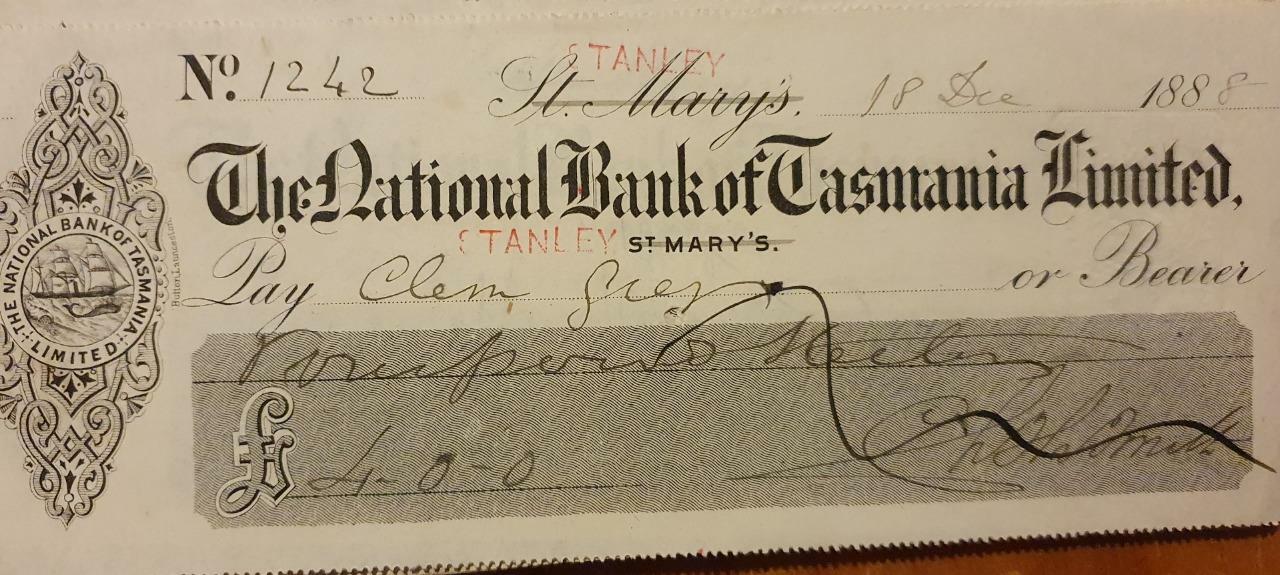 STANLEY
No. 1242 St. Mary's. 18 Dec 1888
The National Bank of Tasmania Limited,
STANLEY ST MARY'S.
Pay Clem Grey or Bearer
Four pounds Sterling
£ 4-0-0
Smith
THE NATIONAL BANK OF TASMANIA LIMITED